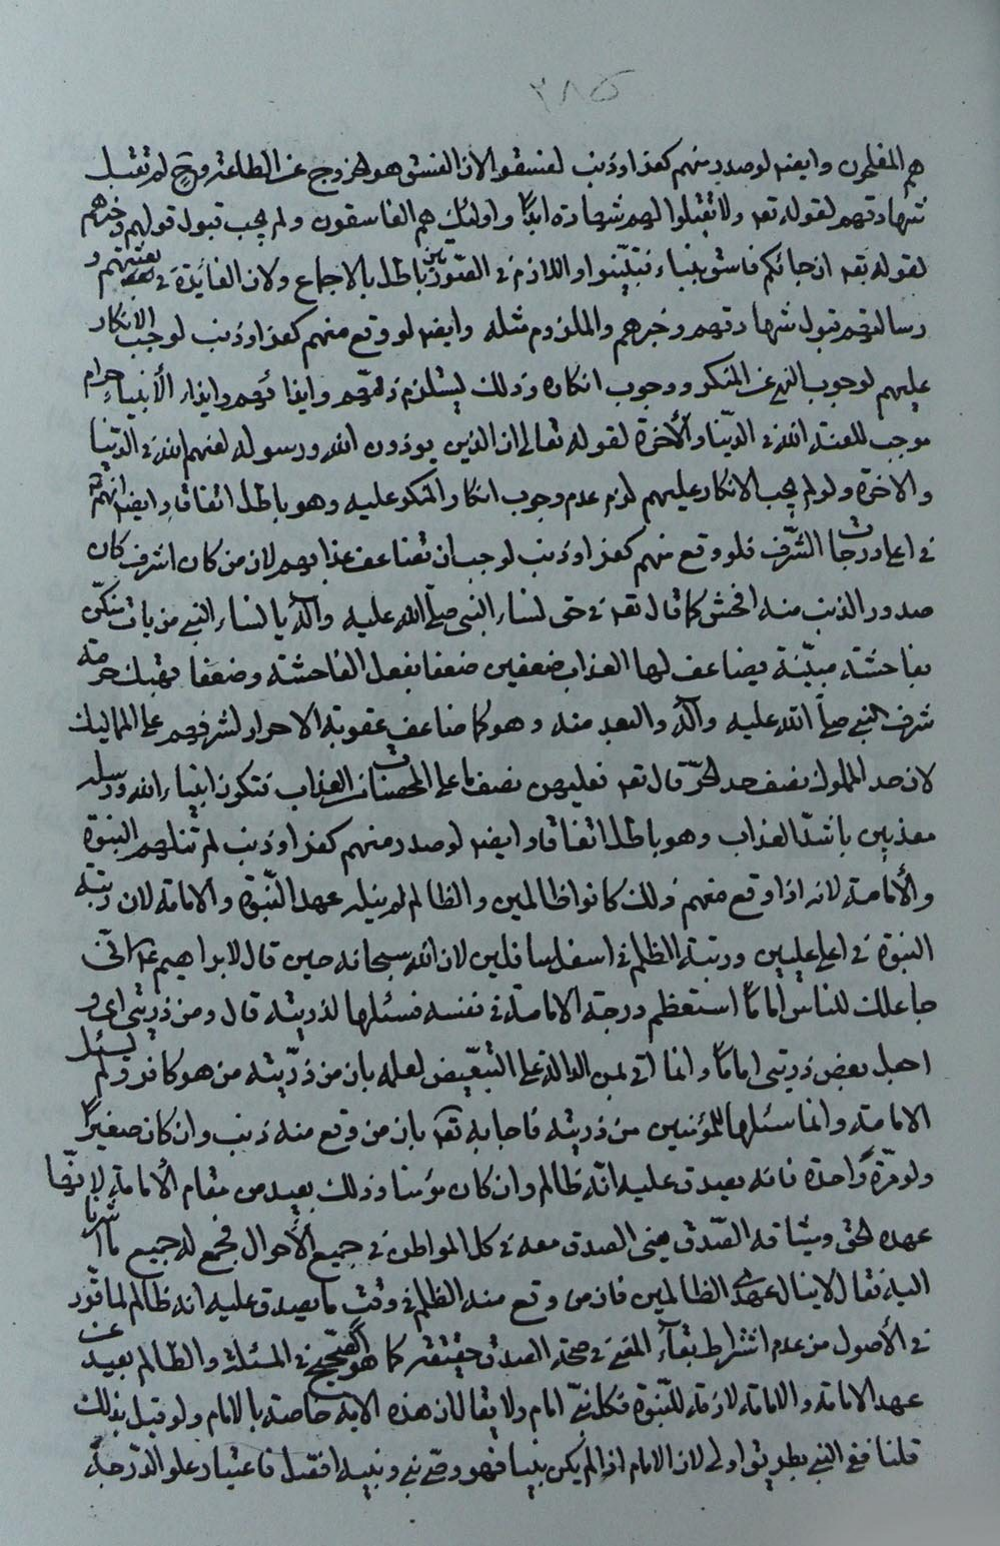 هم المفلحون وايضه لو صدر منهم كفر او ذنب لفسقوا لان الفسق هو الخروج عن الطاعة وح لم تقبل
شهادتهم لقوله تعه ولا تقبلوا لهم شهادة ابدًا واولئك هم الفاسقون ولم يجب قبول قولهم وخبرهم
لقوله تعه ان جائكم فاسق بنباء فتبيّنوا واللازم في القولين باطل بالاجماع ولان الفايدة في بعثتهم و
رسالتهم قبول شهادتهم وخبرهم والملزوم مثله وايضه لو وقع منهم كفر او ذنب لوجب الانكار
عليهم لوجوب النهي عن المنكر ووجوب انكاره وذلك يستلزم ذمّهم وايذائهم وايذاء الأنبياء حرام
موجب للعنة الله في الدّنيا والأخرة لقوله تعالى ان الذين يوذون الله ورسوله لعنهم الله في الدّنيا
والاخرة ولو لم يجب الانكار عليهم لزم عدم وجوب انكار المنكر عليه وهو باطل اتفاقا وايضه انهم
في اعلا درجات الشّرف فلو وقع منهم كفر او ذنب لوجب ان تضاعف عذابهم لان من كان اشرف كان
صدور الذنب منه افحش كما قال تعه في حق نساء النبي صلّى الله عليه وآله يا نساء النبي من يات منكنّ
بفاحشة مبيّنة يضاعف لها العذاب ضعفين ضعفا بفعل الفاحشة وضعفا بهتك حرمة
شرف النبي صلّى الله عليه وآله والبعد منه وهو كما ضاعف عقوبة الاحرار لشرفهم على المماليك
لان حد المملوك نصف حد الحرّ قال تعه فعليهن نصف ما على المحصنات من العذاب فتكون انبياء الله ورسله
معذبين باشدّ العذاب وهو باطل اتفاقا وايضه لو صدر منهم كفر او ذنب لم تنلهم النبوة
والأمامة لانه اذا وقع منهم ذلك كانوا ظالمين والظالم لم ينله عهد النّبوة والامامة لان رتبة
النبوة في اعلى عليين ورتبة الظلم في اسفل سافلين لان الله سبحانه حين قال لابراهيم ع انّي
جاعلك للناس أمامًا استعظم درجة الامامة في نفسه فسئلها لذريته قال ومن ذريتي اى و
اجعل بعض ذريتي امامًا وانما اتى بمن الدالة على التبعيض لعلمه بان من ذرّيته من هو كافر ولم يسئل له
الامامة وانما سئلها للمؤمنين من ذريته فاجابه تعه بان من وقع منه ذنب وان كان صغيرًا
ولو مرّةً واحدة فانه يصدق عليه انّه ظالم وان كان مؤمنا وذلك بعيد من مقام الأمامة لانّها
عهده الحق وميثاقه الصّدق يعني الصدق معه في كل المواطن في جميع الأحوال فجمع له جميع ما اشرنا
اليه فقال لا ينال عهدى الظالمين فان من وقع منه الظلم في وقتٍ ما يصدق عليه انه ظالم لما قرّر
في الأصول من عدم اشتراط بقاء المعنى في صحة الصدق حقيقة كما هو الصّحيح في المسئلة والظالم بعيد عن
عهد الامامة والامامة لازمة للنّبوة فكل نبيّ امام ولا يقال ان هذه الاية خاصة بالامام ولو قيل بذلك
قلنا ففي النبي بطريق اولى لان الامام اذا لم يكن نبيا فهو وصي نبي ونبيه افضل فاعتبار علو الدّرجة